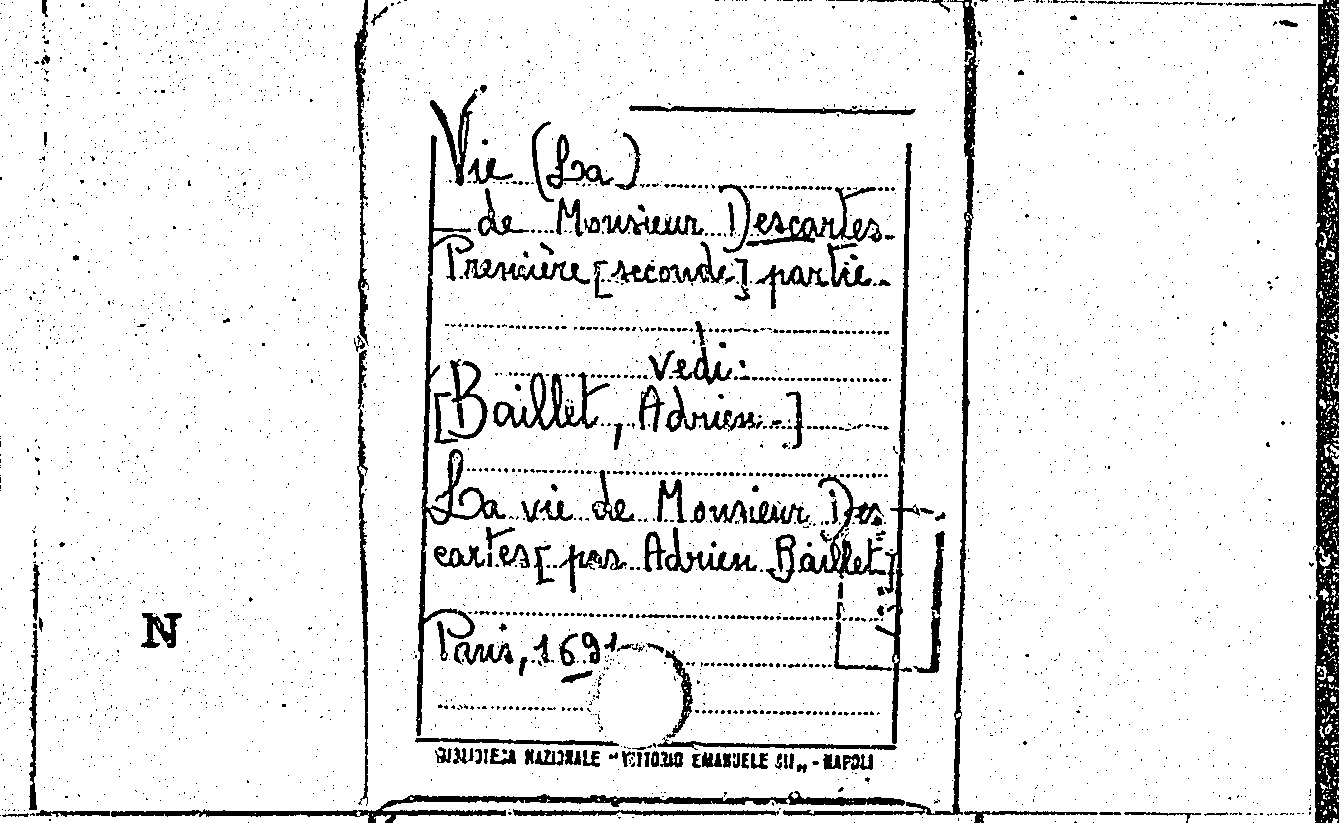 Vie (La)
_ de Monsieur Descartes.
Première [seconde] partie.
vedi:
[Baillet, Adrien.]
La vie de Monsieur Des
cartes [par Adrien Baillet]
Paris, 1691
N
BIBLIOTECA NAZIONALE "VITTORIO EMANUELE III„ - NAPOLI